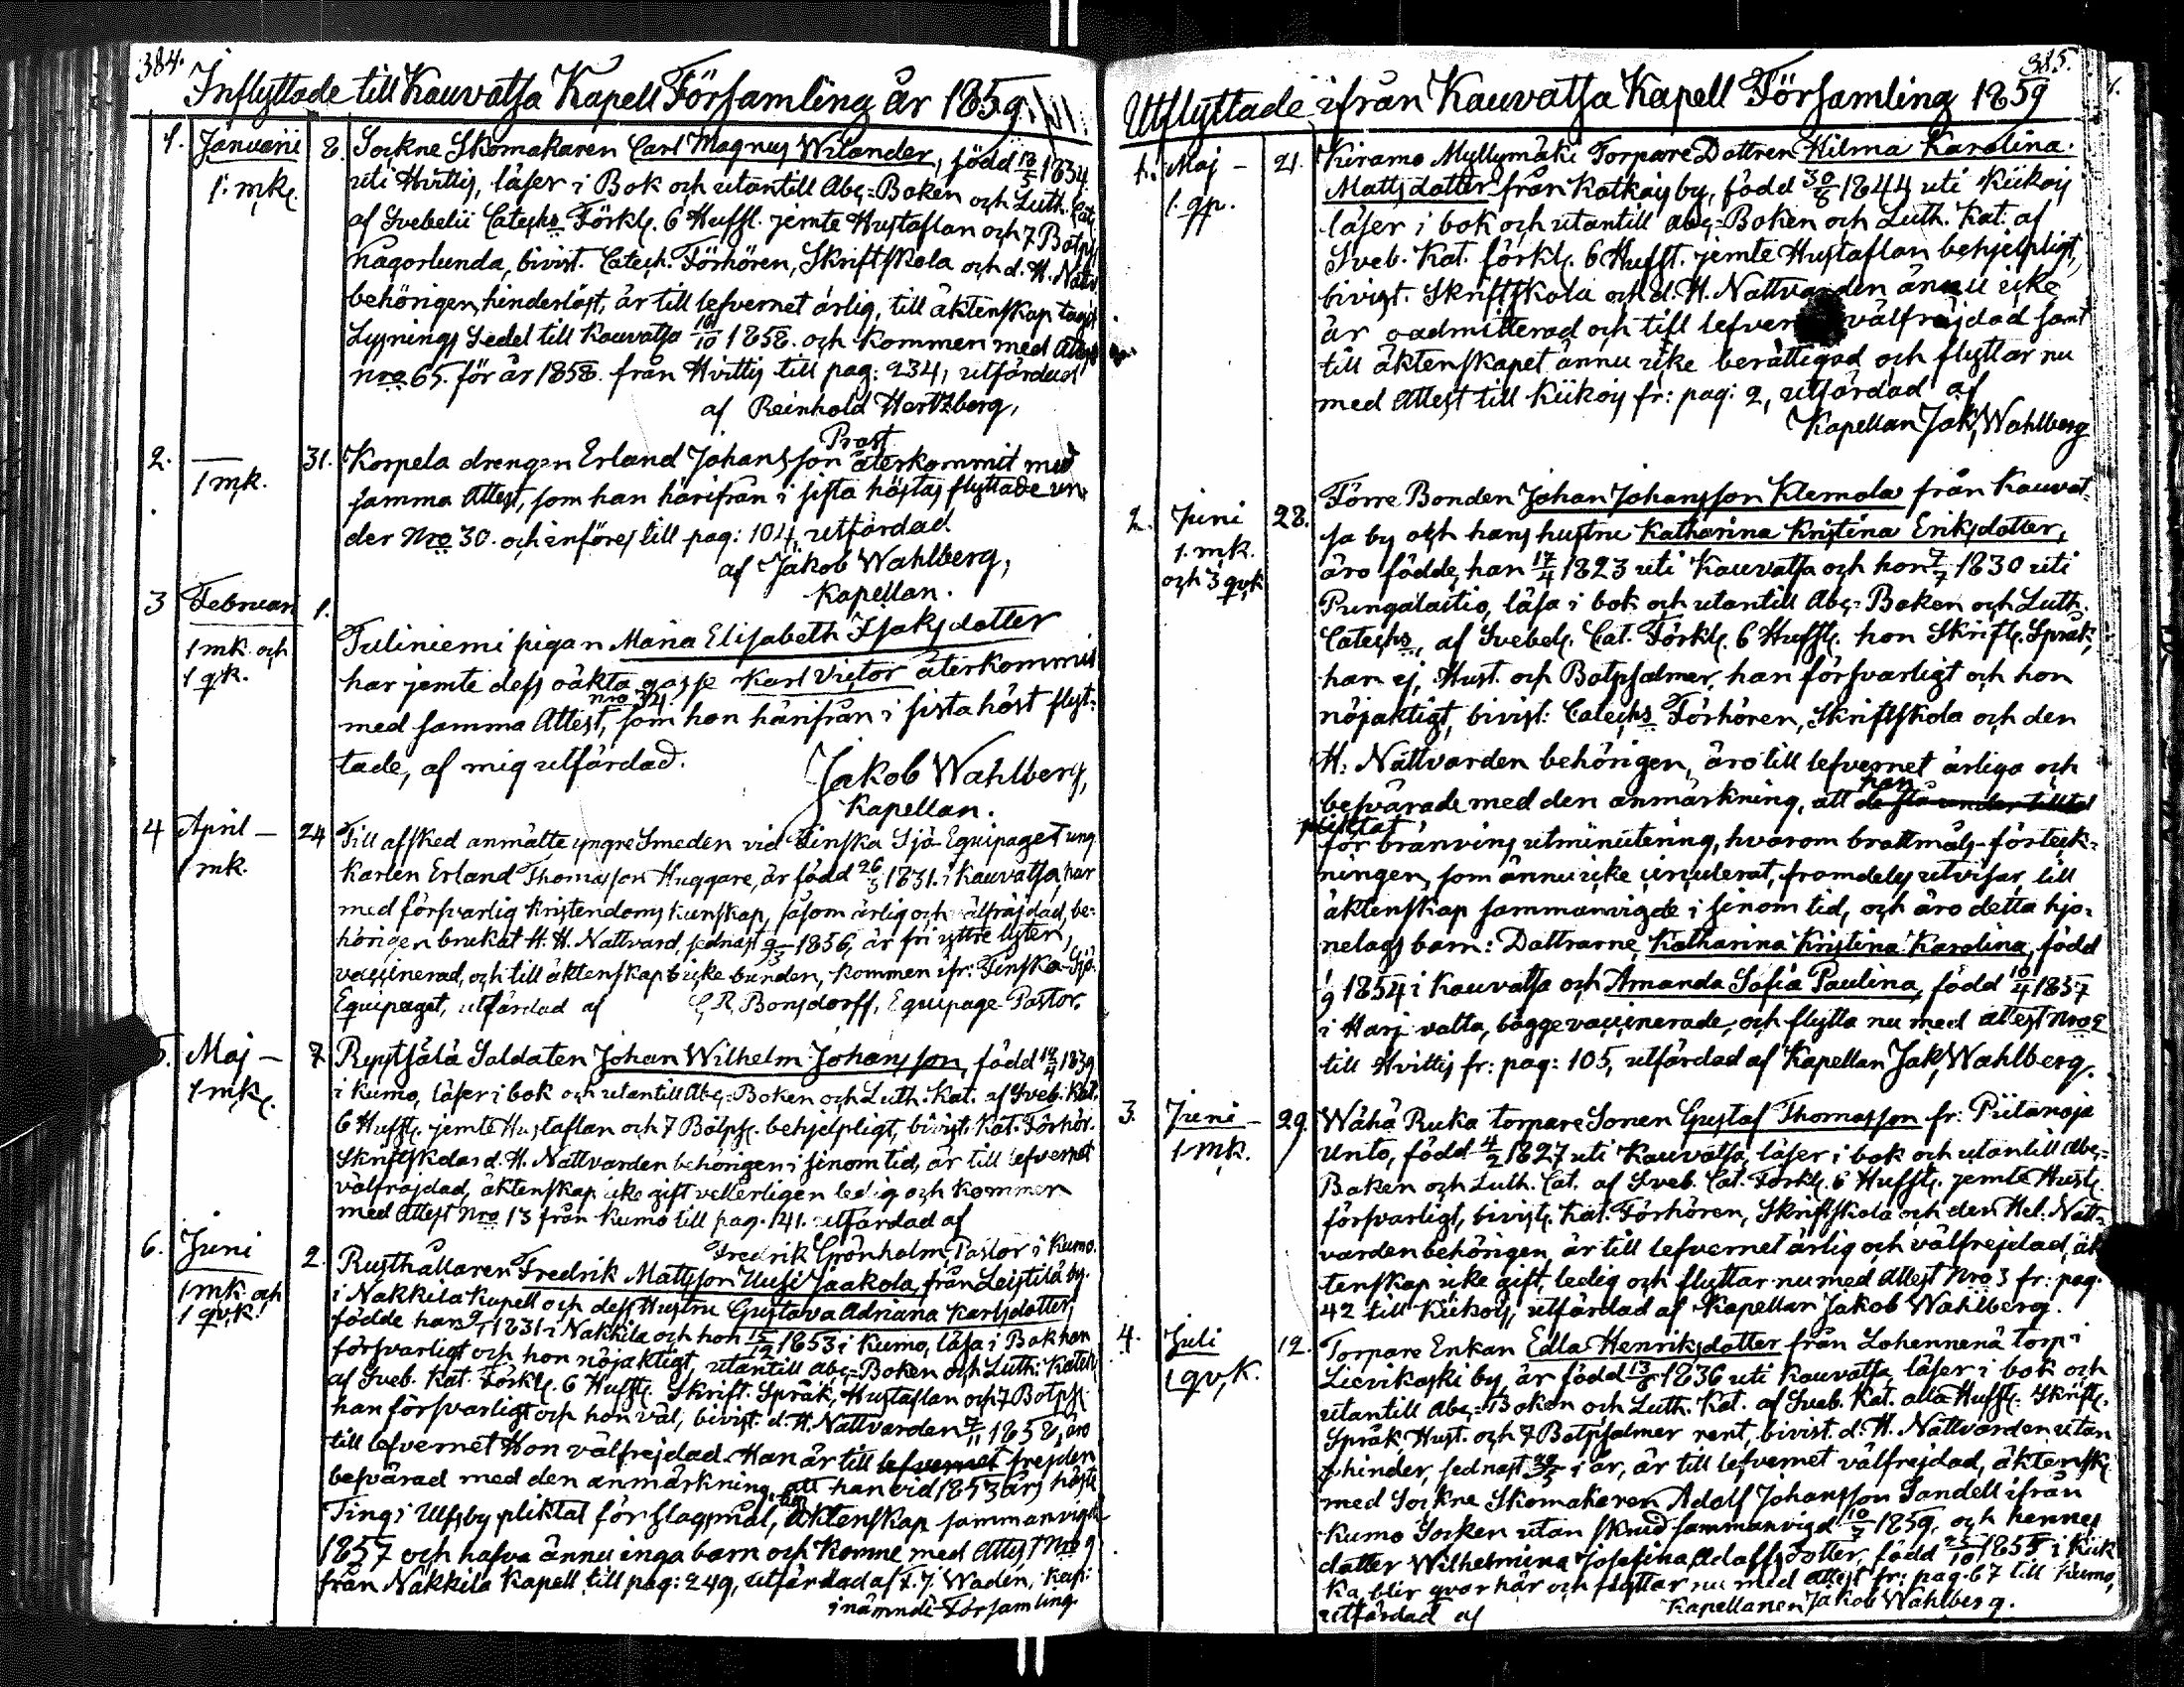 384.
Inflyttade till Kauvatsa Kapell Församling år 1859.
1. Januarii 8. Sockne Skomakaren Carl Magnus Wilander, född 1834
1. mk. uti Hvittis, läser i Bok och utantill Abc-Boken och Luth. Cat.
af Svebelii Cateches Förkl. 6 Hufst. jemte Hustaflan och 7 Botps.
nagorlunda, bivist. Catech. Förhören, Skriftskola och d. H. Nattv.
behörigen, hinderlöst, är till lefvernet ärlig, till äktenskap tagit
Lysnings Sedel till Kauvatsa 1858. och kommen med Attest
nro 65. för år 1858. från Hvittis till pag: 234, utfärdad
af Reinhold Hertzberg,
Prost
2. — 31. Korpela drengen Erland Johansson återkommit med
1 mk. samma Attest, som han härifrån i sista höstas flyttade un-
der Nro 30. och införes till pag: 104, utfärdad
af Jakob Wahlberg,
Kapellan.
3 Februari 1. Tuliniemi pigan Maria Elisabeth Isaksdotter
1 mk. och har jemte dess oäkta gosse Karl Victor återkommit
1 qk. med samma Attest, nro 34. som hon härifrån i sista höst flyt-
tade, af mig utfärdad.
Jakob Wahlberg,
Kapellan.
4 April — 24 Till afsked anmälte yngre Smeden vid Finska Sjö-Equipaget ung
1 mk. Karlen Erland Thomasson Huggare, är född 1831. i Kauvatsa, har
med försvarlig kristendoms kunskap, såsom ärlig och välfräjdad, be-
hörigen brukat H. H. Nattvard, sednast 1856, är fri yttre lyten,
vaccinerad, och till äktenskap icke bunden, kommen ifr: Finska-Sjö
Equipaget, utfärdad af C. R. Bonsdorff, Equipage-Pastor.
5. Maj — 7 Soldaten Johan Wilhelm Johansson, född 1839
1 mk. i Kumo, läser i bok och utantill Abc-Boken och Luth. Kat. af Sveb. Kat.
6 Hufst. jemte Hustaflan och 7 Botps. behjelpligt, bivist. Kat. Förhör.
Skriftskola d. H. Nattvarden behörigen i sinom tid, är till lefvernet
välfräjdad, äktenskap icke gift vetterligen ledig och kommen
med Attest Nro 13 från Kumo till pag. 141. utfärdad af
Fredrik Grönholm, Pastor i Kumo.
6. Juni 2. Rusthållaren Fredrik Mattsson Uusi Jaakola, från Leistilä by.
1 mk och i Nakkila Kapell och dess Hustru Gustava Adriana Karlsdotter,
1 qvk. födde han 1831 i Nakkila och hon 1853 i Kumo, läsa i Bok han
försvarligt och hon nöjaktigt, utantill Abc-Boken och Luth: Katek
af Sveb. Kat. Förkl. 6 Hufst. Skrift. Språk, Hustaflan och 7 Botps.
han försvarligt och hon väl, bivist. d. H. Nattvarden 1858, äro
till lefvernet Hon välfrejdad. Han är till lefvernet frejden
besvärad med den anmärkning, att han vid 1853 års höste
Ting i Ulfsby pliktat för slagsmål, till äktenskap sammanvigde
1857 och hafva ännu inga barn och komne med Attest Nro 9
från Nakkila Kapell till pag: 249, utfärdad af F. J. Wadén, Kap:
i nämnde Församling.
385.
Utflyttade ifrån Kauvatsa Kapell Församling 1859
1. Maj — 21. Kiramo Myllymäki Torpare Dottren Hilma Karolina
1. qp. Mattsdotter från Katkais by, född 30/8 1844 uti Kiikois
läser i bok och utantill Abc-Boken och Luth. Kat. af
Sveb. Kat. förkl. 6 Hufst. jemte Hustaflan behjelpligt,
bivist. Skriftskola och d. H. Nattvarden ännu icke
är oadmitterad och till lefver välfräjdad samt
till äktenskapet ännu icke berättigad och flyttar nu
med Attest till Kiikois fr: pag: 2, utfärdad af
Kapellan Jak. Wahlberg
2. Juni 28. Förre Bonden Johan Johansson Klemola från Kauvat-
1. mk. sa by och hans hustru Katharina Kristina Eriksdotter,
och 3 qvk äro födde, han 17/4 1823 uti Kauvatsa och hon 7/7 1830 uti
Pungalaitio, läsa i bok och utantill Abc-Boken och Luth.
Cateches, af Svebel. Cat. Förkl. 6 Hufst. hon Skrift. Språk,
han ej, Hust. och Botpsalmer, han försvarligt och hon
nöjaktigt, bivist: Cateches Förhören, Skriftskola och den
H. Nattvarden behörigen, äro till lefvernet ärliga och
besvärade med den anmärkning, att han
pliktat
för bränvins utminutering, hvarom brottmåls-förteck-
ningen, som ännu icke circulerat, framdeles utvisar, till
äktenskap sammanvigde i sinom tid, och äro detta hjo-
nelags barn: Dottrarne, Katharina Kristina Karolina, född
1/9 1854 i Kauvatsa och Amanda Sofia Paulina, född 10/4 1857
i Harjavalta, bägge vaccinerade, och flytta nu med attest Nro 2
till Hvittis fr: pag: 105, utfärdad af Kapellan Jak. Wahlberg.
3. Juni — 29. Wähä Ruka torpare Sonen Gustaf Thomasson fr: Piilanoja
1 mk. Unto, född 4/2 1827 uti Kauvatsa, läser i bok och utantill Abc-
Boken och Luth. Cat. af Sveb. Cat. Förkl. 6 Hufst. jemte Hust.
försvarligt, bivist. Kat. Förhören, Skriftskola och den Hel. Natt-
varden behörigen, är till lefvernet ärlig och välfrejdad, äk
tenskap icke gift, ledig och flyttar nu med Attest Nro 3 fr: pag.
42 till Kiikois, utfärdad af Kapellan Jakob Wahlberg.
4. Juli 12. Torpare Enkan Edla Henriksdotter från Lohennenä torp i
1 qv.K. Lievikoski by, är född 1836 uti Kauvatsa, läser i bok och
utantill Abc-Boken och Luth. Kat. af Sveb. Kat. alla Hufst. Skrift.
Språk, Hust. och 7 Botpsalmer rent, bivist. d. H. Nattvarden utan
hinder, sednast i år, är till lefvernet välfrejdad, äktensk.
med Sockne Skomakaren Adolf Johansson Sandell ifrån
Kumo Socken utan skrud sammanvigd 10/7 1859, och hennes
dotter Wilhelmina Josefina Adolfsdotter, född 1855 i Kiik
ka, blir qvar här och flyttar nu med attest fr: pag. 67 till Kumo,
utfärdad af Kapellanen Jakob Wahlberg.